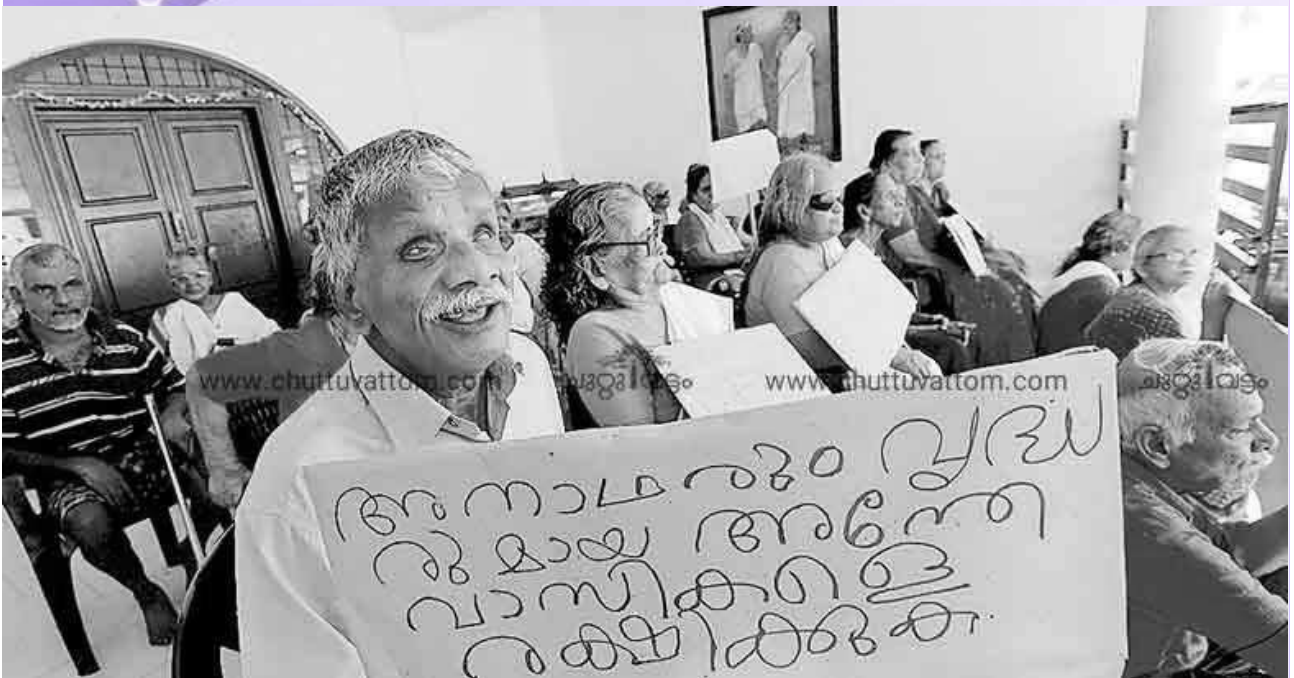 www.chuttuvattom.com
www.chuttuvattom.com ചുറ്റുവട്ടം
അനാഥരും വൃദ്ധ
രുമായ അന്തേ
വാസികളെ
രക്ഷിക്കുക.